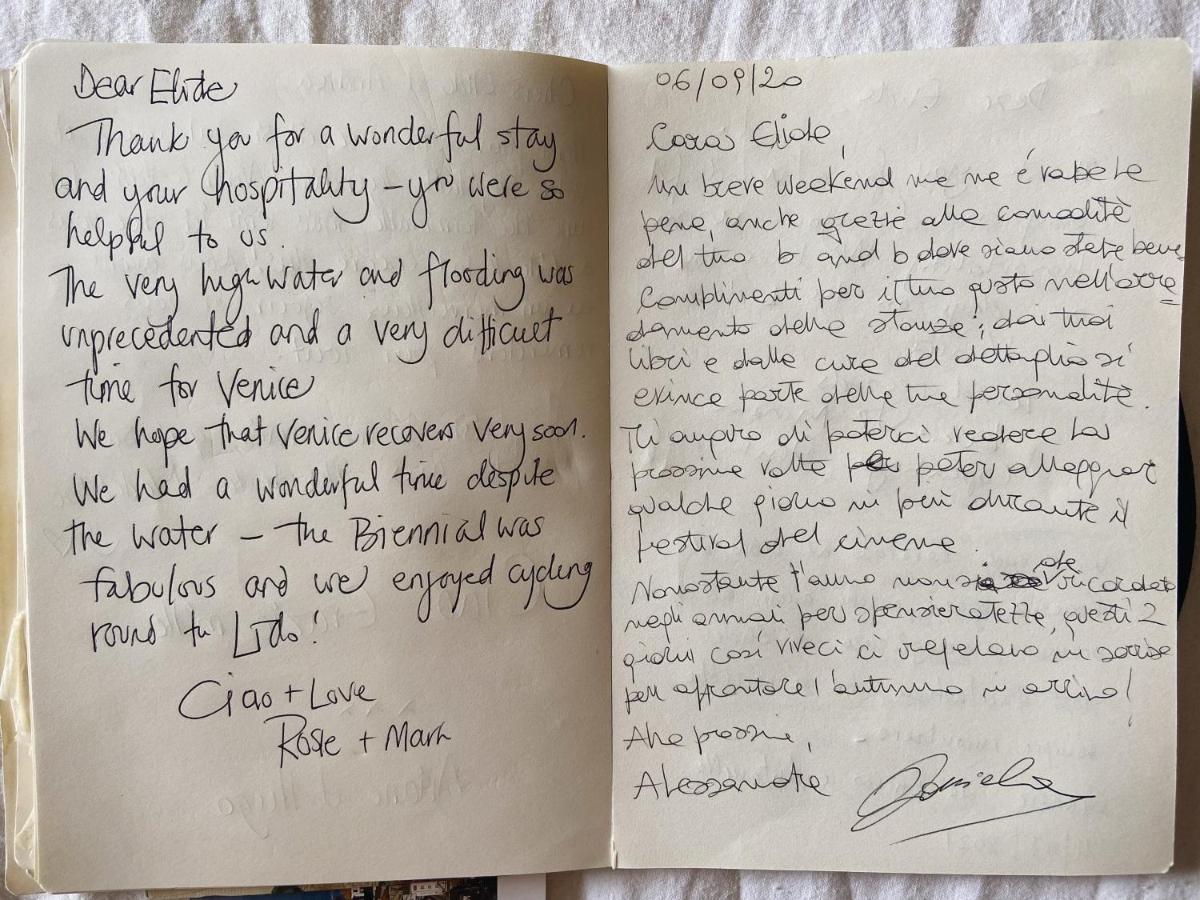 Dear Elide
Thank you for a wonderful stay
and your hospitality – you were so
helpful to us.
The very high water and flooding was
unprecedented and a very difficult
time for Venice
We hope that Venice recovers very soon.
We had a wonderful time despite
the water – the Biennial was
fabulous and we enjoyed cycling
round the Lido!
Ciao + Love
Rosie + Mark
06/09/20
Cara Elide,
un breve weekend ma ne è valsa la
pena, anche grazie alla comodità
del tuo b and b dove siamo state bene.
Complimenti per il tuo gusto nell'arre
damento delle stanze; dai tuoi
libri e dalla cura del dettaglio si
evince parte della tua personalità.
Ti auguro di poterci vedere la
prossima volta per poter alloggiare
qualche giorno in più durante il
festival del cinema.
Nonostante l'anno non sia da ricordare
negli annali per spensieratezza, questi 2
giorni così vivaci ci regalano un sorriso
per affrontare l'autunno in arrivo!
Alla prossima,
Alessandra Daniela